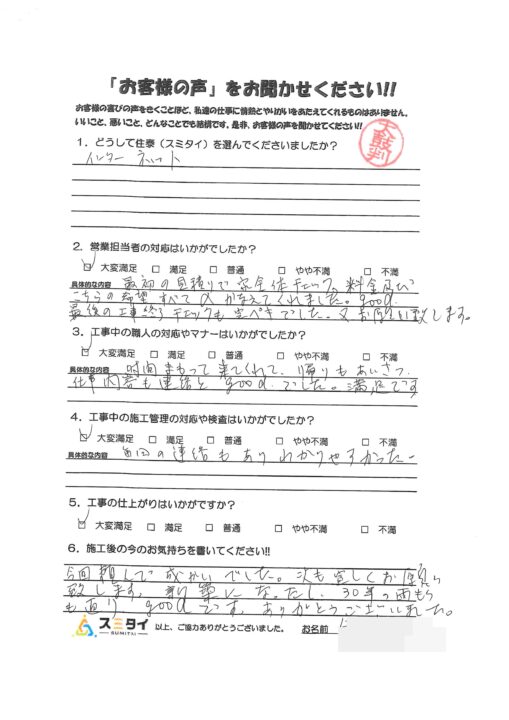 「お客様の声」をお聞かせください!!
お客様の喜びの声をきくことほど、私達の仕事に情熱とやりがいをあたえてくれるものはありません。
いいこと、悪いこと、どんなことでも結構です。是非、お客様の声を聞かせてください!!
太鼓判
1．どうして住泰（スミタイ）を選んでくださいましたか？
インターネット
2．営業担当者の対応はいかがでしたか？
☑ 大変満足 □ 満足 □ 普通 □ やや不満 □ 不満
具体的な内容 最初の見積りで 全体チェック、料金及び
こちらの希望すべて かなえてくれました。good.
最後の工事終了チェックも完ぺきでした。又お願い致します。
3．工事中の職人の対応やマナーはいかがでしたか？
☑ 大変満足 □ 満足 □ 普通 □ やや不満 □ 不満
具体的な内容 時間まもって来てくれて、帰りもあいさつ、
仕事内容も連絡と good でした。満足です
4．工事中の施工管理の対応や検査はいかがでしたか？
☑ 大変満足 □ 満足 □ 普通 □ やや不満 □ 不満
具体的な内容 毎回の連絡もあり わかりやすかったー
5．工事の仕上がりはいかがですか？
☑ 大変満足 □ 満足 □ 普通 □ やや不満 □ 不満
6．施工後の今のお気持ちを書いてください!!
今回頼んで 成かいでした。次も宜しくお願い
致します。新築になったし、30年の雨もり
も直り good です。ありがとうございました。
スミタイ SUMITAI 以上、ご協力ありがとうございました。 お名前